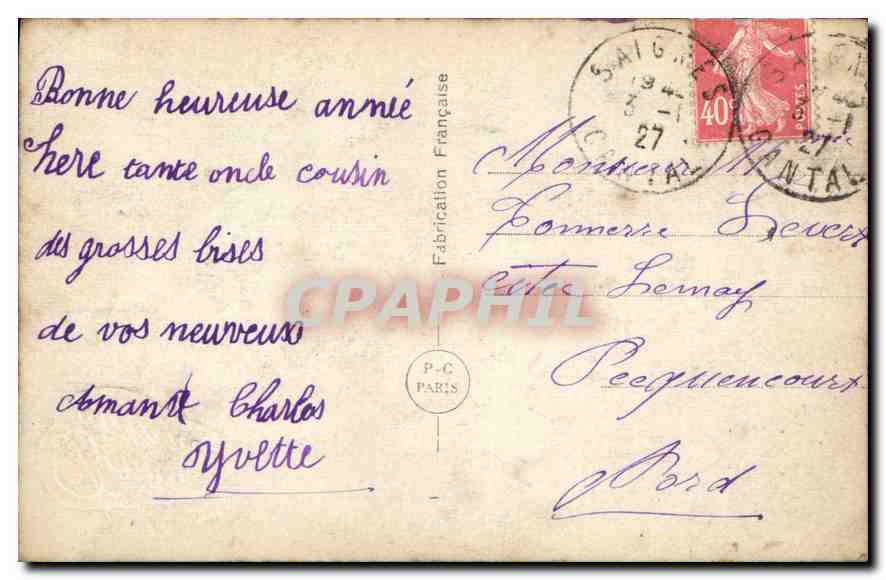 Bonne heureuse année
here tante oncle cousin
des grosses bises
de vos neuveux
Amant Charlos
Yvette
Fabrication Française
P-C
PARIS
CPAPHIL
SAIGNES
19 4
3 -1
27
CANTAL
40c
POSTES
27
CANTAL
Monsieur
Tonnerre Levert
Citée Lemay
Pecquencourt
Nord